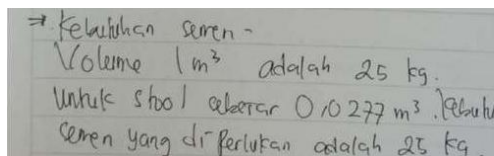 ⇒ Kebutuhan semen -
Volume 1 m³ adalah 25 kg.
Untuk sbol sebesar 0,0277 m³. kebutu
semen yang di perlukan adalah 25 kg